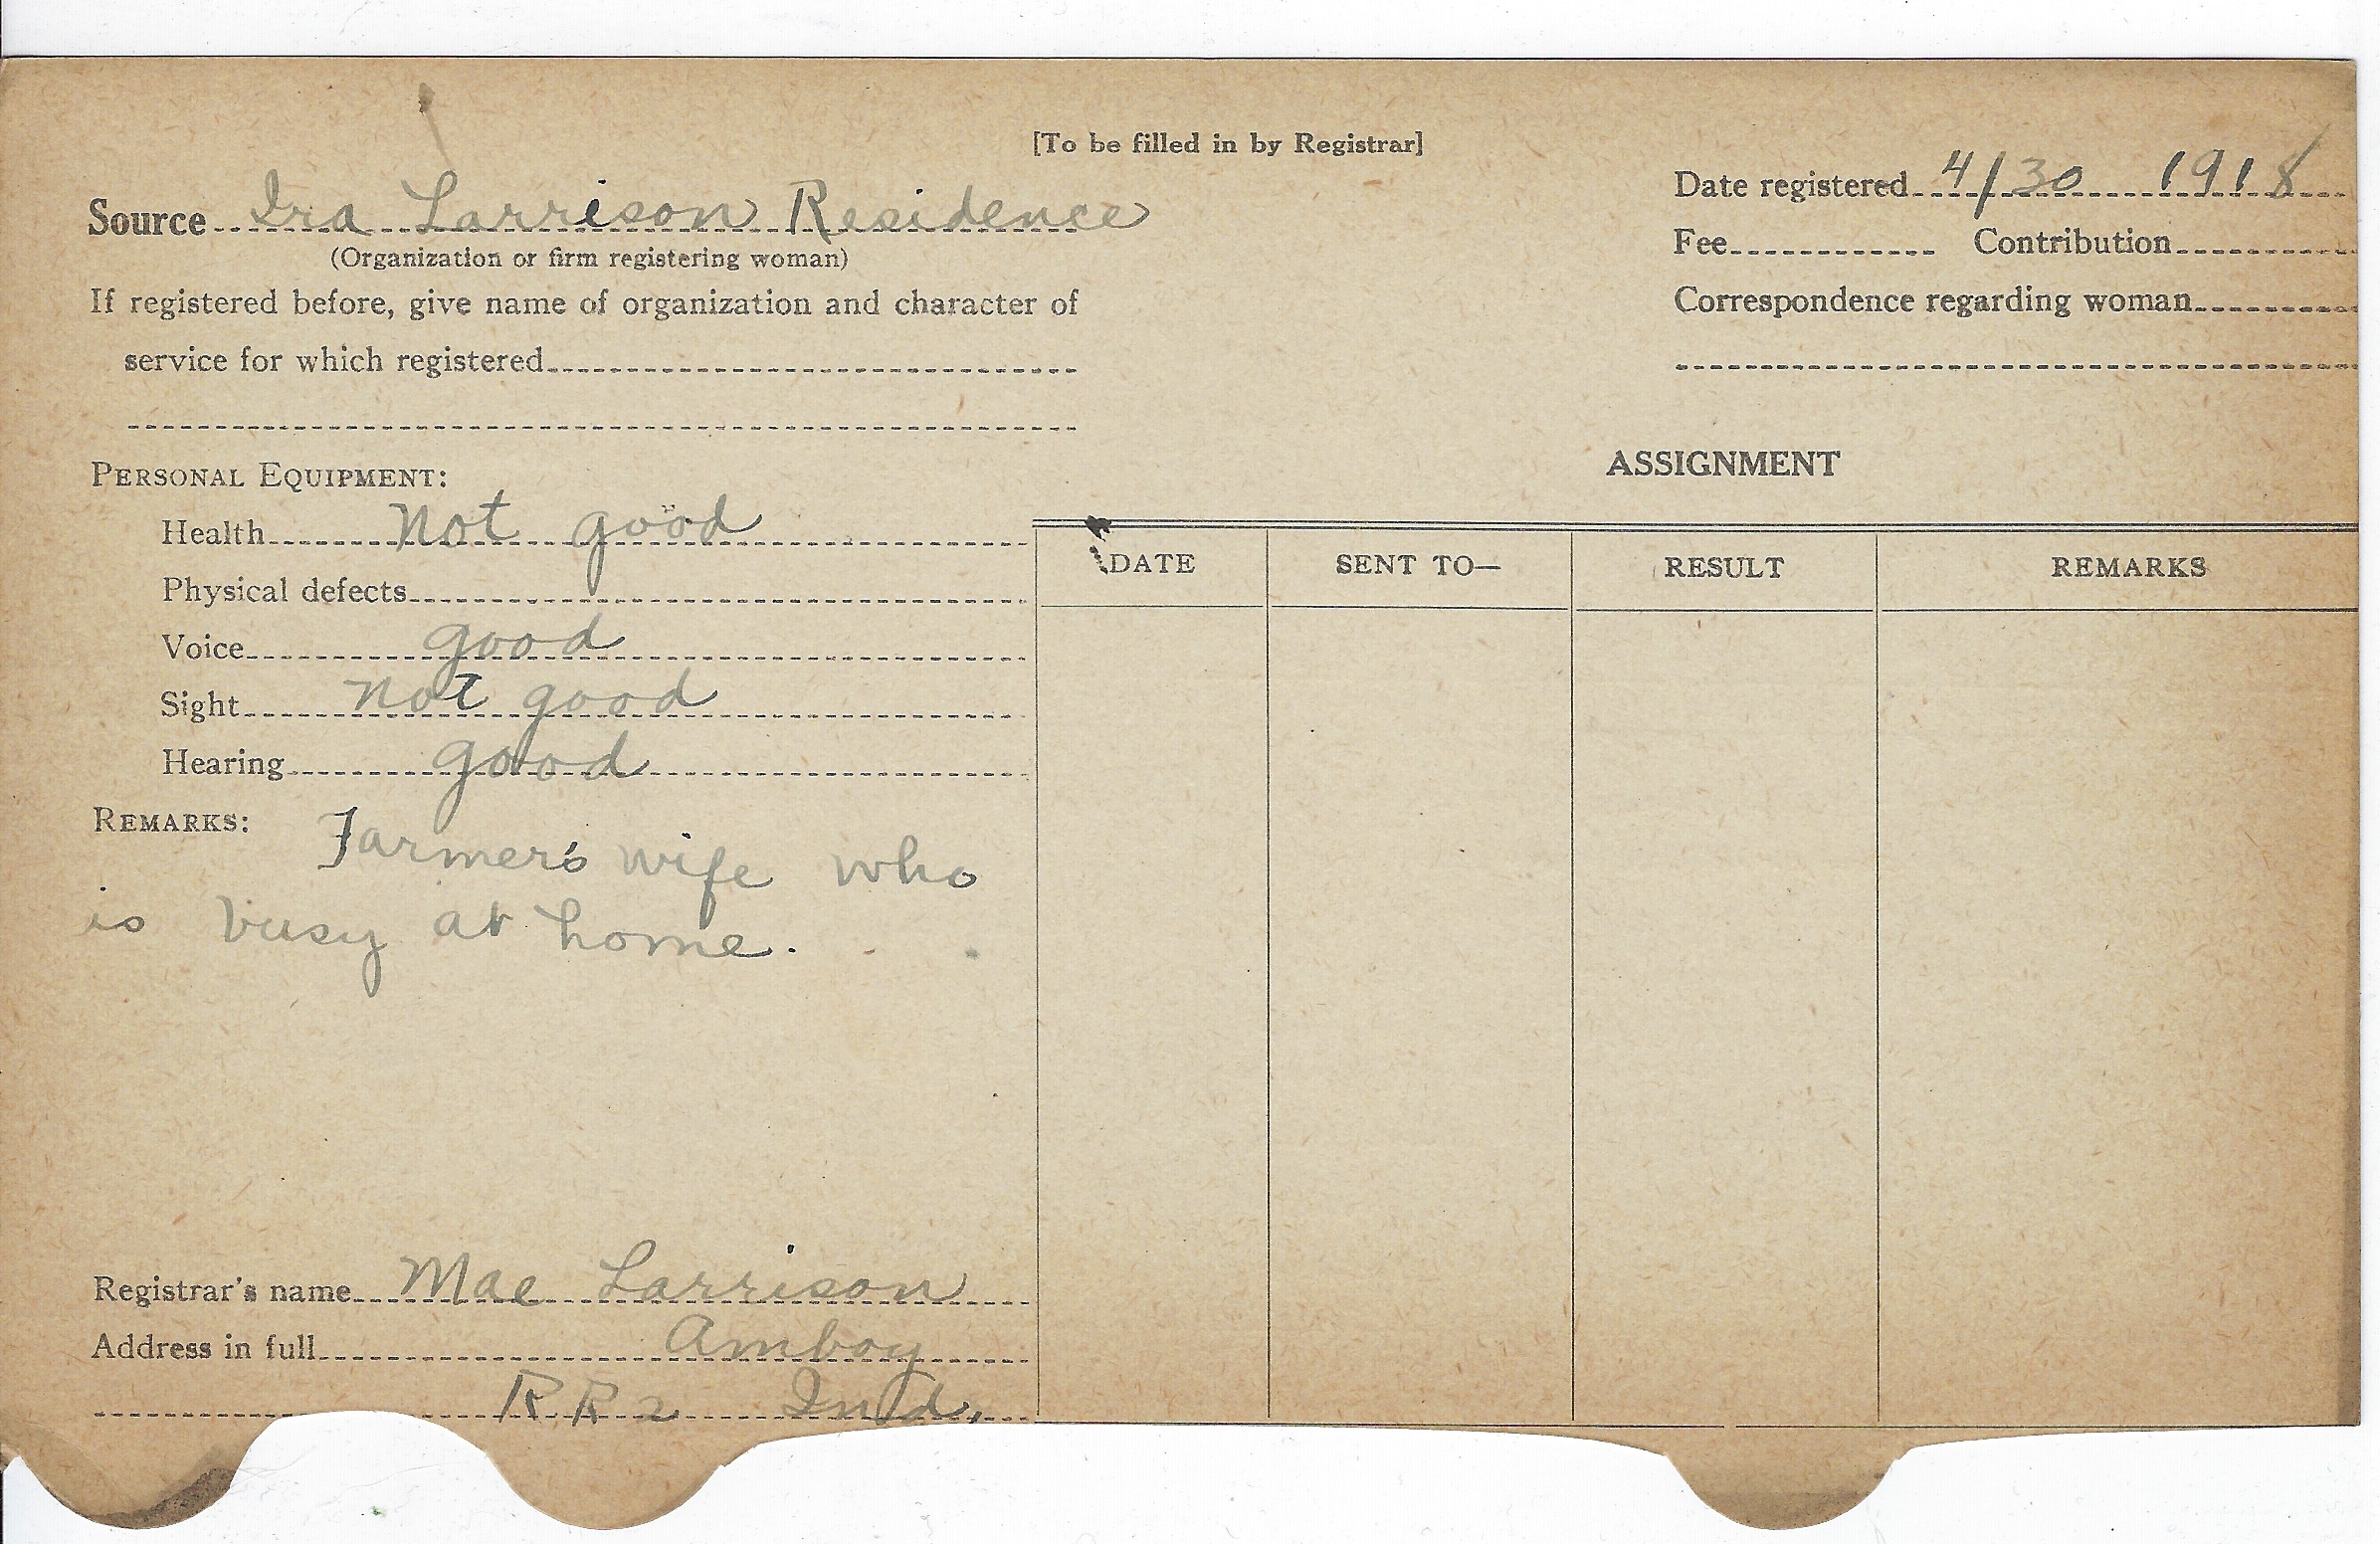 [To be filled in by Registrar]
Source Ira Larrison Residence
(Organization or firm registering woman)
If registered before, give name of organization and character of
service for which registered
Date registered 4/30 1918
Fee Contribution
Correspondence regarding woman
PERSONAL EQUIPMENT:
Health Not good
Physical defects
Voice good
Sight not good
Hearing good
REMARKS: Farmer's wife who
is busy at home.
Registrar's name Mae Larrison
Address in full Amboy
R R 2 Ind.
ASSIGNMENT
DATE SENT TO— RESULT REMARKS